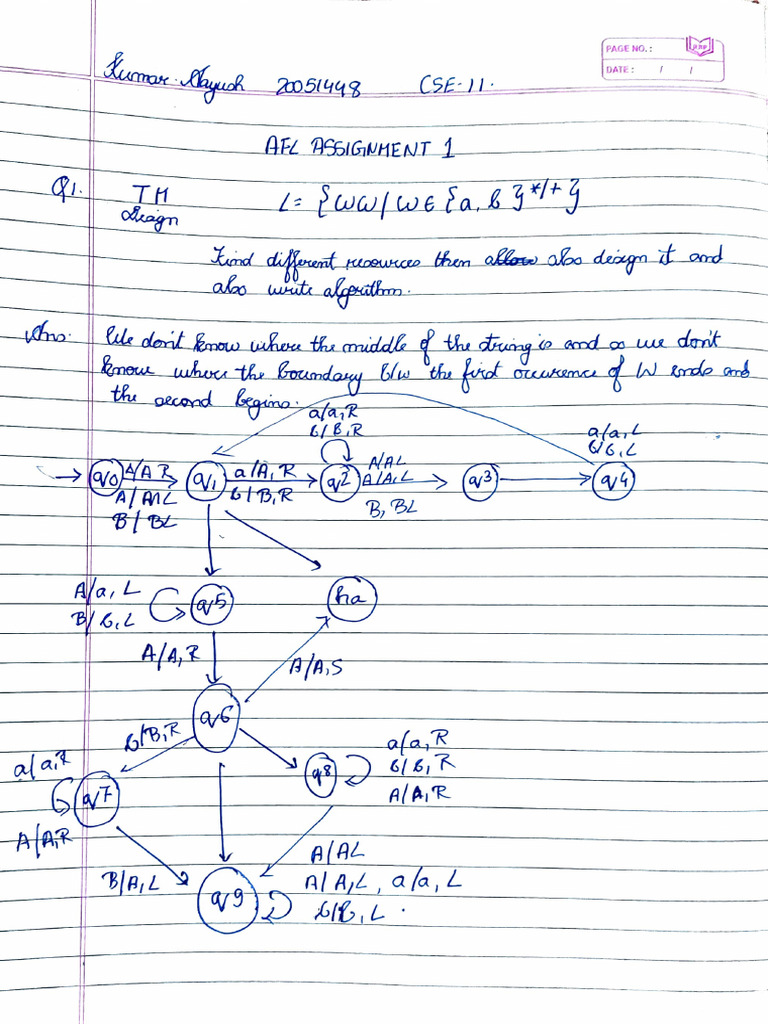 PAGE NO.:
DATE: / /
Kumar Aayush 20051448 CSE-11.
AFL ASSIGNMENT 1
Q1. TM L= {ωω/ω∈{a,b}*/+}
Design
Find different resources then also design it and
also write algorithm.
Ans. We don't know where the middle of the string is and so we don't
know where the boundary b/w the first occurence of W ends and
the second begins.
a/a,R
b/b,R
a/a,L
b/b,L
q0 Δ/Δ R q1 a/A,R q2 Δ/ΔL q3 q4
A/A,L b/B,R A/A,L
B/BL B,BL
A/a,L q5 ha
B/b,L
Δ/Δ,R Δ/Δ,S
q6
b/B,R a/a,R
a/a,R q8 b/b,R
q7 Δ/Δ,R
A/A,R
Δ/ΔL
B/Δ,L Δ/Δ,L, a/a,L
q9 b/b,L.